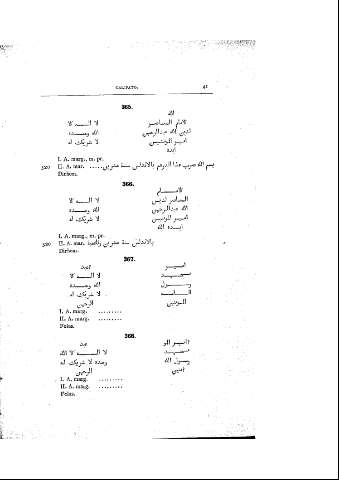 CALIFATO. 41
365.
الله
لا الـــه الا الامام الناصر
الله وحـــده لدين الله عبدالرحمن
لا شريك له امير المومنين
ايده
I. A. marg., m. pr.
320 II. A. mar. بسم الله ضرب هذا الدرهم بالاندلس سنة عشرين .....
Dirhem.
366.
الامـــام
لا الـــه الا الناصر لدين
الله وحـــده الله عبدالرحمن
لا شريك له امير المومنين
ايـده الله
I. A. marg., m. pr.
320 II. A. mar. بالاندلس سنة عشرين وثلثمية
Dirhem.
367.
لا الـــه الا
الله وحـــده رســـول
لا شريك له الـــلـــه
الرحمن المومنين
I. A. marg. .........
II. A. marg. .........
Felus.
368.
لا الـــه الا الله
وحده لا شريك له رسول الله
الرحمن
I. A. marg. .........
II. A. marg. .........
Felus.